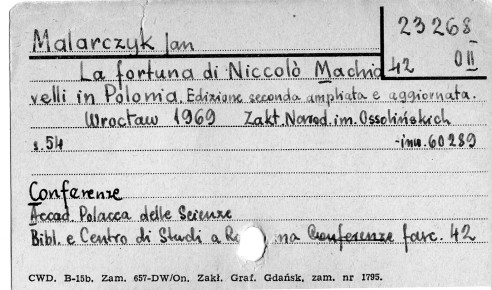 23 268
Malarczyk Jan
42 O II
La fortuna di Niccolò Machia
velli in Polonia. Edizione seconda ampliata e aggiornata.
Wrocław 1969 Zakł. Narod. im. Ossolińskich
s. 54 -inw. 60289
Conferenze
Accad. Polacca delle Scienze
Bibl. e Centro di Studi a Ro ma Conferenze fasc. 42
CWD. B-15b. Zam. 657-DW/On. Zakł. Graf. Gdańsk, zam. nr 1795.